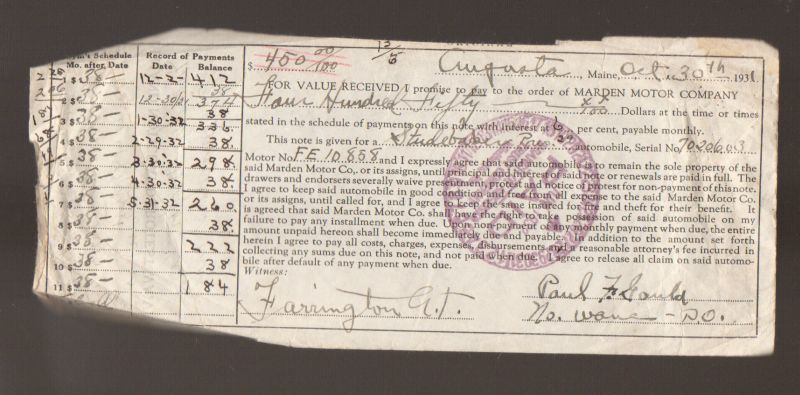 m't Schedule
Mo. after Date
Record of Payments
Date Balance
1 $ 38—
12-2- 412
38
2 $ 38—
12-30/31 374
38
3 $ 38—
1-30-32 336
4 $ 38—
2-29-32 38.
5 $ 38—
3-30-32 298
6 $ 38—
4-30-32 38.
7 $ 38—
5-31-32 260
8 $ 38—
38.
9 $ 38—
222
10 $ 38—
38
11 $ 38—
184
$ 450 00/100
Augusta, Maine, Oct. 30th 1931
FOR VALUE RECEIVED I promise to pay to the order of MARDEN MOTOR COMPANY
Four Hundred Fifty xx/100 Dollars at the time or times
stated in the schedule of payments on this note with interest at 6 per cent, payable monthly.
This note is given for a Studebaker automobile, Serial No.
Motor No. FE 10858 and I expressly agree that said automobile is to remain the sole property of the
said Marden Motor Co,. or its assigns, until principal and interest of said note or renewals are paid in full. The
drawers and endorsers severally waive presentment, protest and notice of protest for non-payment of this note.
I agree to keep said automobile in good condition and free from all expense to the said Marden Motor Co.
or its assigns, until called for, and I agree to keep the same insured for fire and theft for their benefit. It
is agreed that said Marden Motor Co. shall have the right to take possession of said automobile on my
failure to pay any installment when due. Upon non-payment of a monthly payment when due, the entire
amount unpaid hereon shall become immediately due and payable. In addition to the amount set forth
herein I agree to pay all costs, charges, expenses, disbursements and a reasonable attorney's fee incurred in
collecting any sums due on this note, and not paid when due. I agree to release all claim on said automo-
bile after default of any payment when due.
Witness:
Farrington G.T.
Paul F. Gould
No. Wayne - P.O.